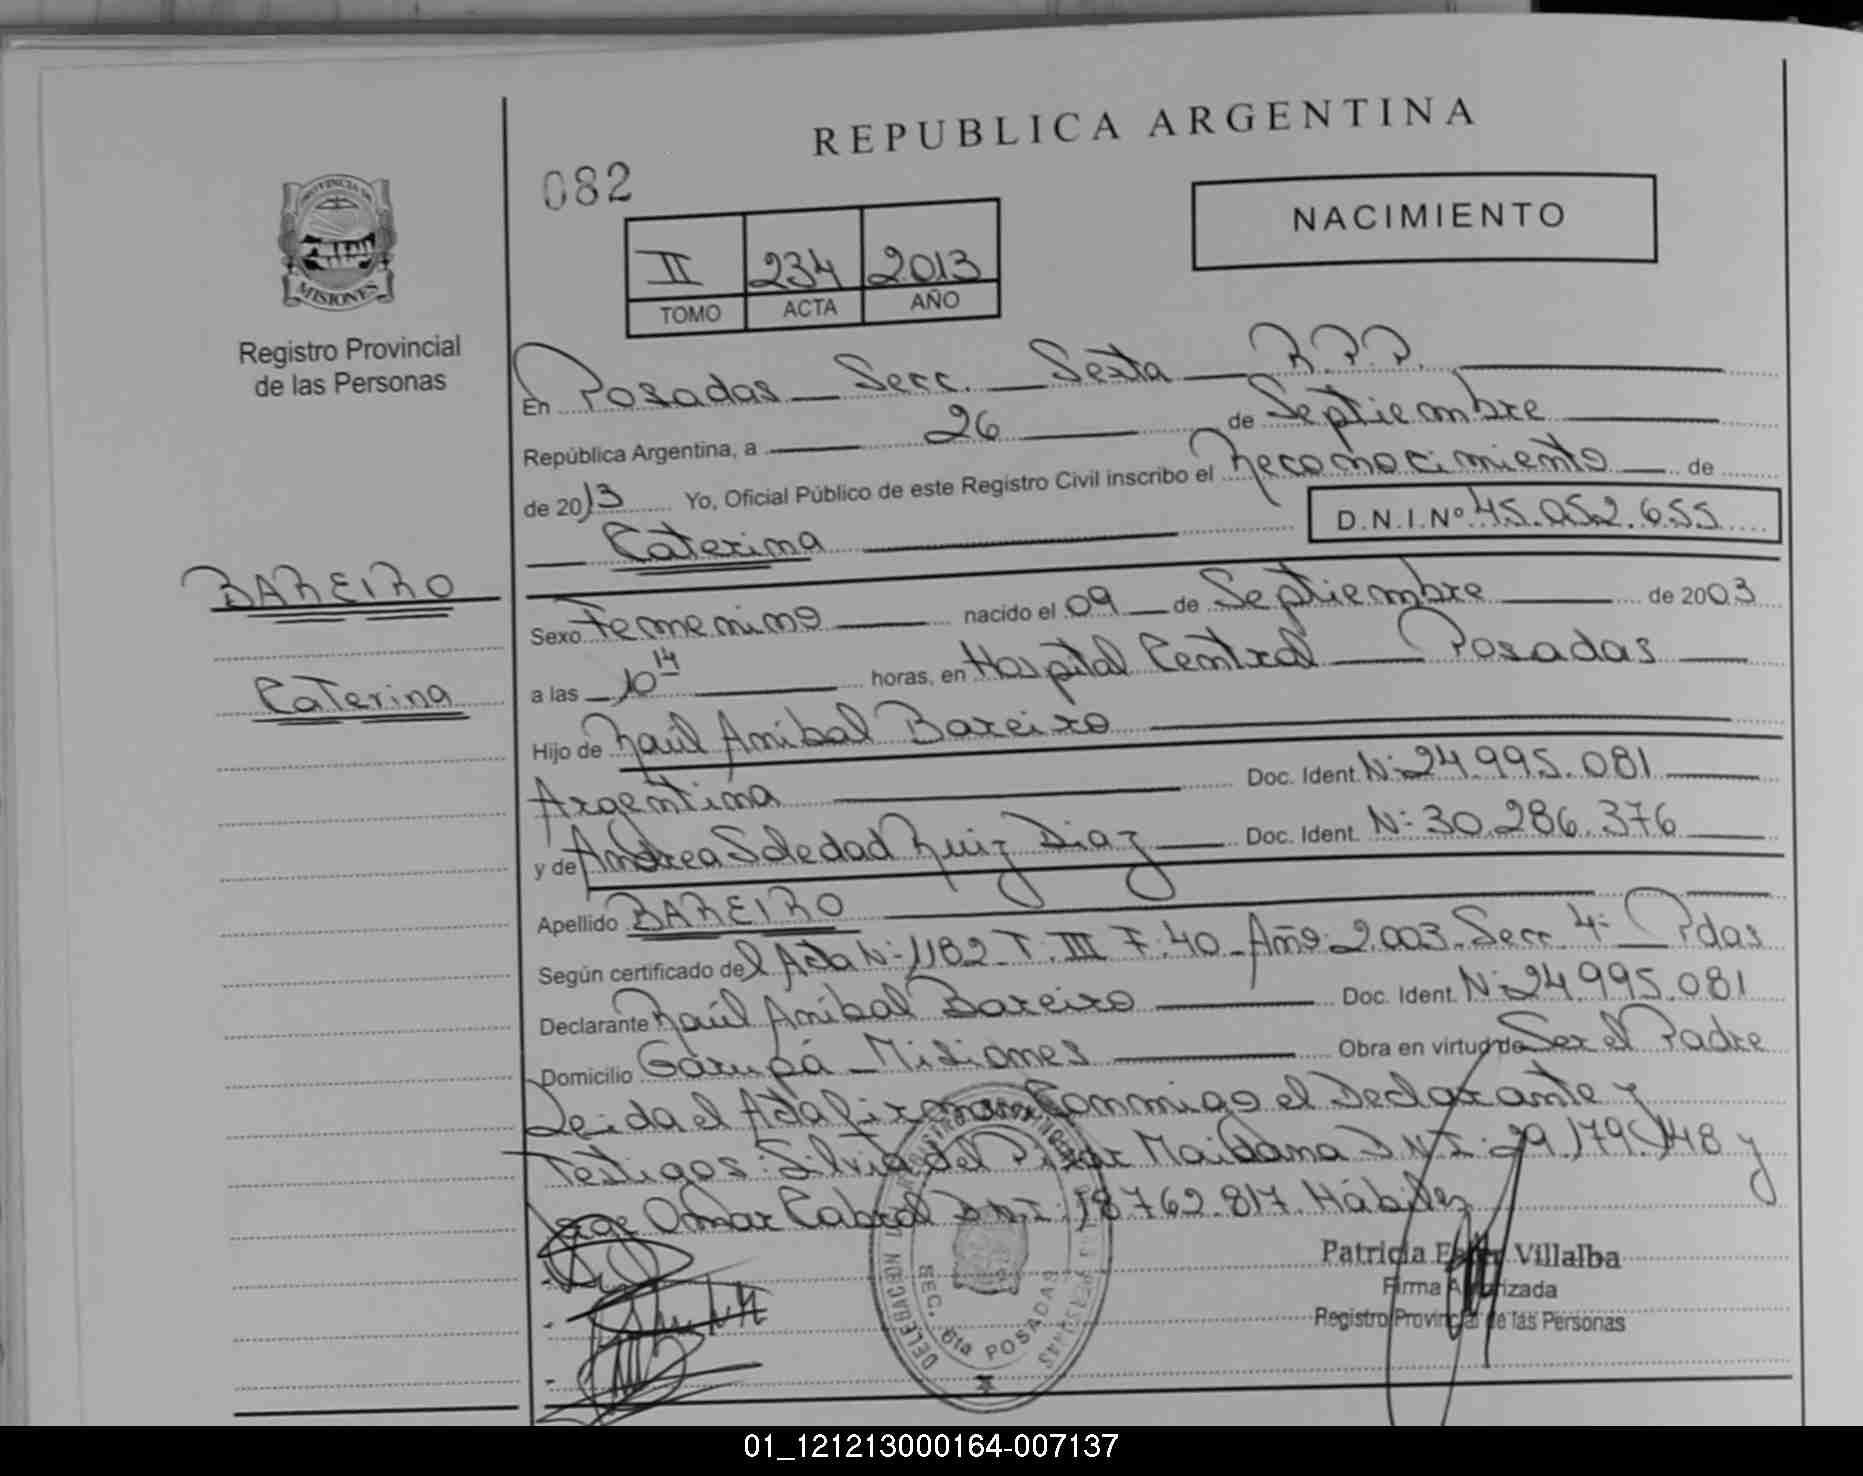 REPUBLICA ARGENTINA
082
NACIMIENTO
II 234 2013
TOMO ACTA AÑO
PROVINCIA DE
MISIONES
Registro Provincial
de las Personas
En Posadas Secc. Sexta R.P.P.
República Argentina, a 26 de Septiembre
de 2013 Yo, Oficial Público de este Registro Civil inscribo el Reconocimiento de
Caterina D.N.I.Nº 45.052.655
BAREIRO
Caterina
Sexo Femenino nacido el 09 de Septiembre de 2003
a las 10 14 horas, en Hospital Central Posadas
Hijo de Raúl Anibal Bareiro
Argentina Doc. Ident. N: 24.995.081
y de Andrea Soledad Ruiz Diaz Doc. Ident. N: 30.286.376
Apellido BAREIRO
Según certificado del Acta N: 1182 T. III F. 40 Año 2.003 Secc 4: Pdas
Declarante Raúl Anibal Bareiro Doc. Ident. N: 24.995.081
Domicilio Garupá Misiones Obra en virtud de Ser el Padre
Leida el Acta firman Conmigo el Declarante y
Testigos: Silvia del Pilar Maidana D.N.I: 29.179.148 y
Jorge Omar Cabral D.N.I: 18.762.817. Hábiles
Patricia Villalba
Firma Autorizada
Registro Provincial de las Personas
DELEGACION
SEC. 6ta POSADAS
01_121213000164-007137